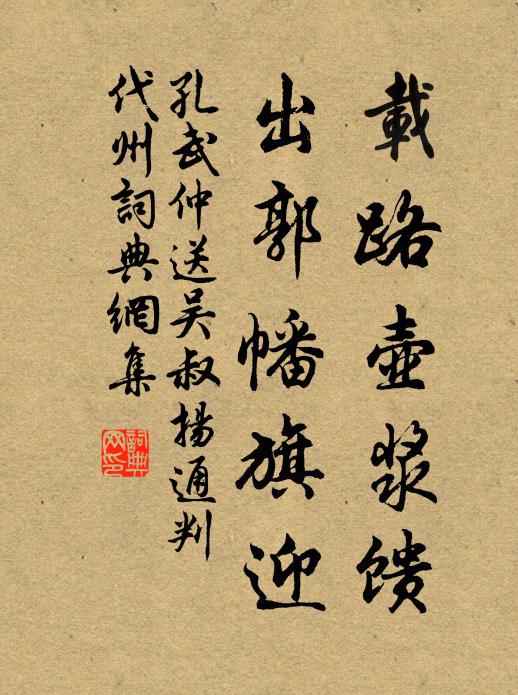 載路壺漿馈
出郭幡旗迎
孔武仲送吴叔揚通判
代州詞典網集
詞典
网印